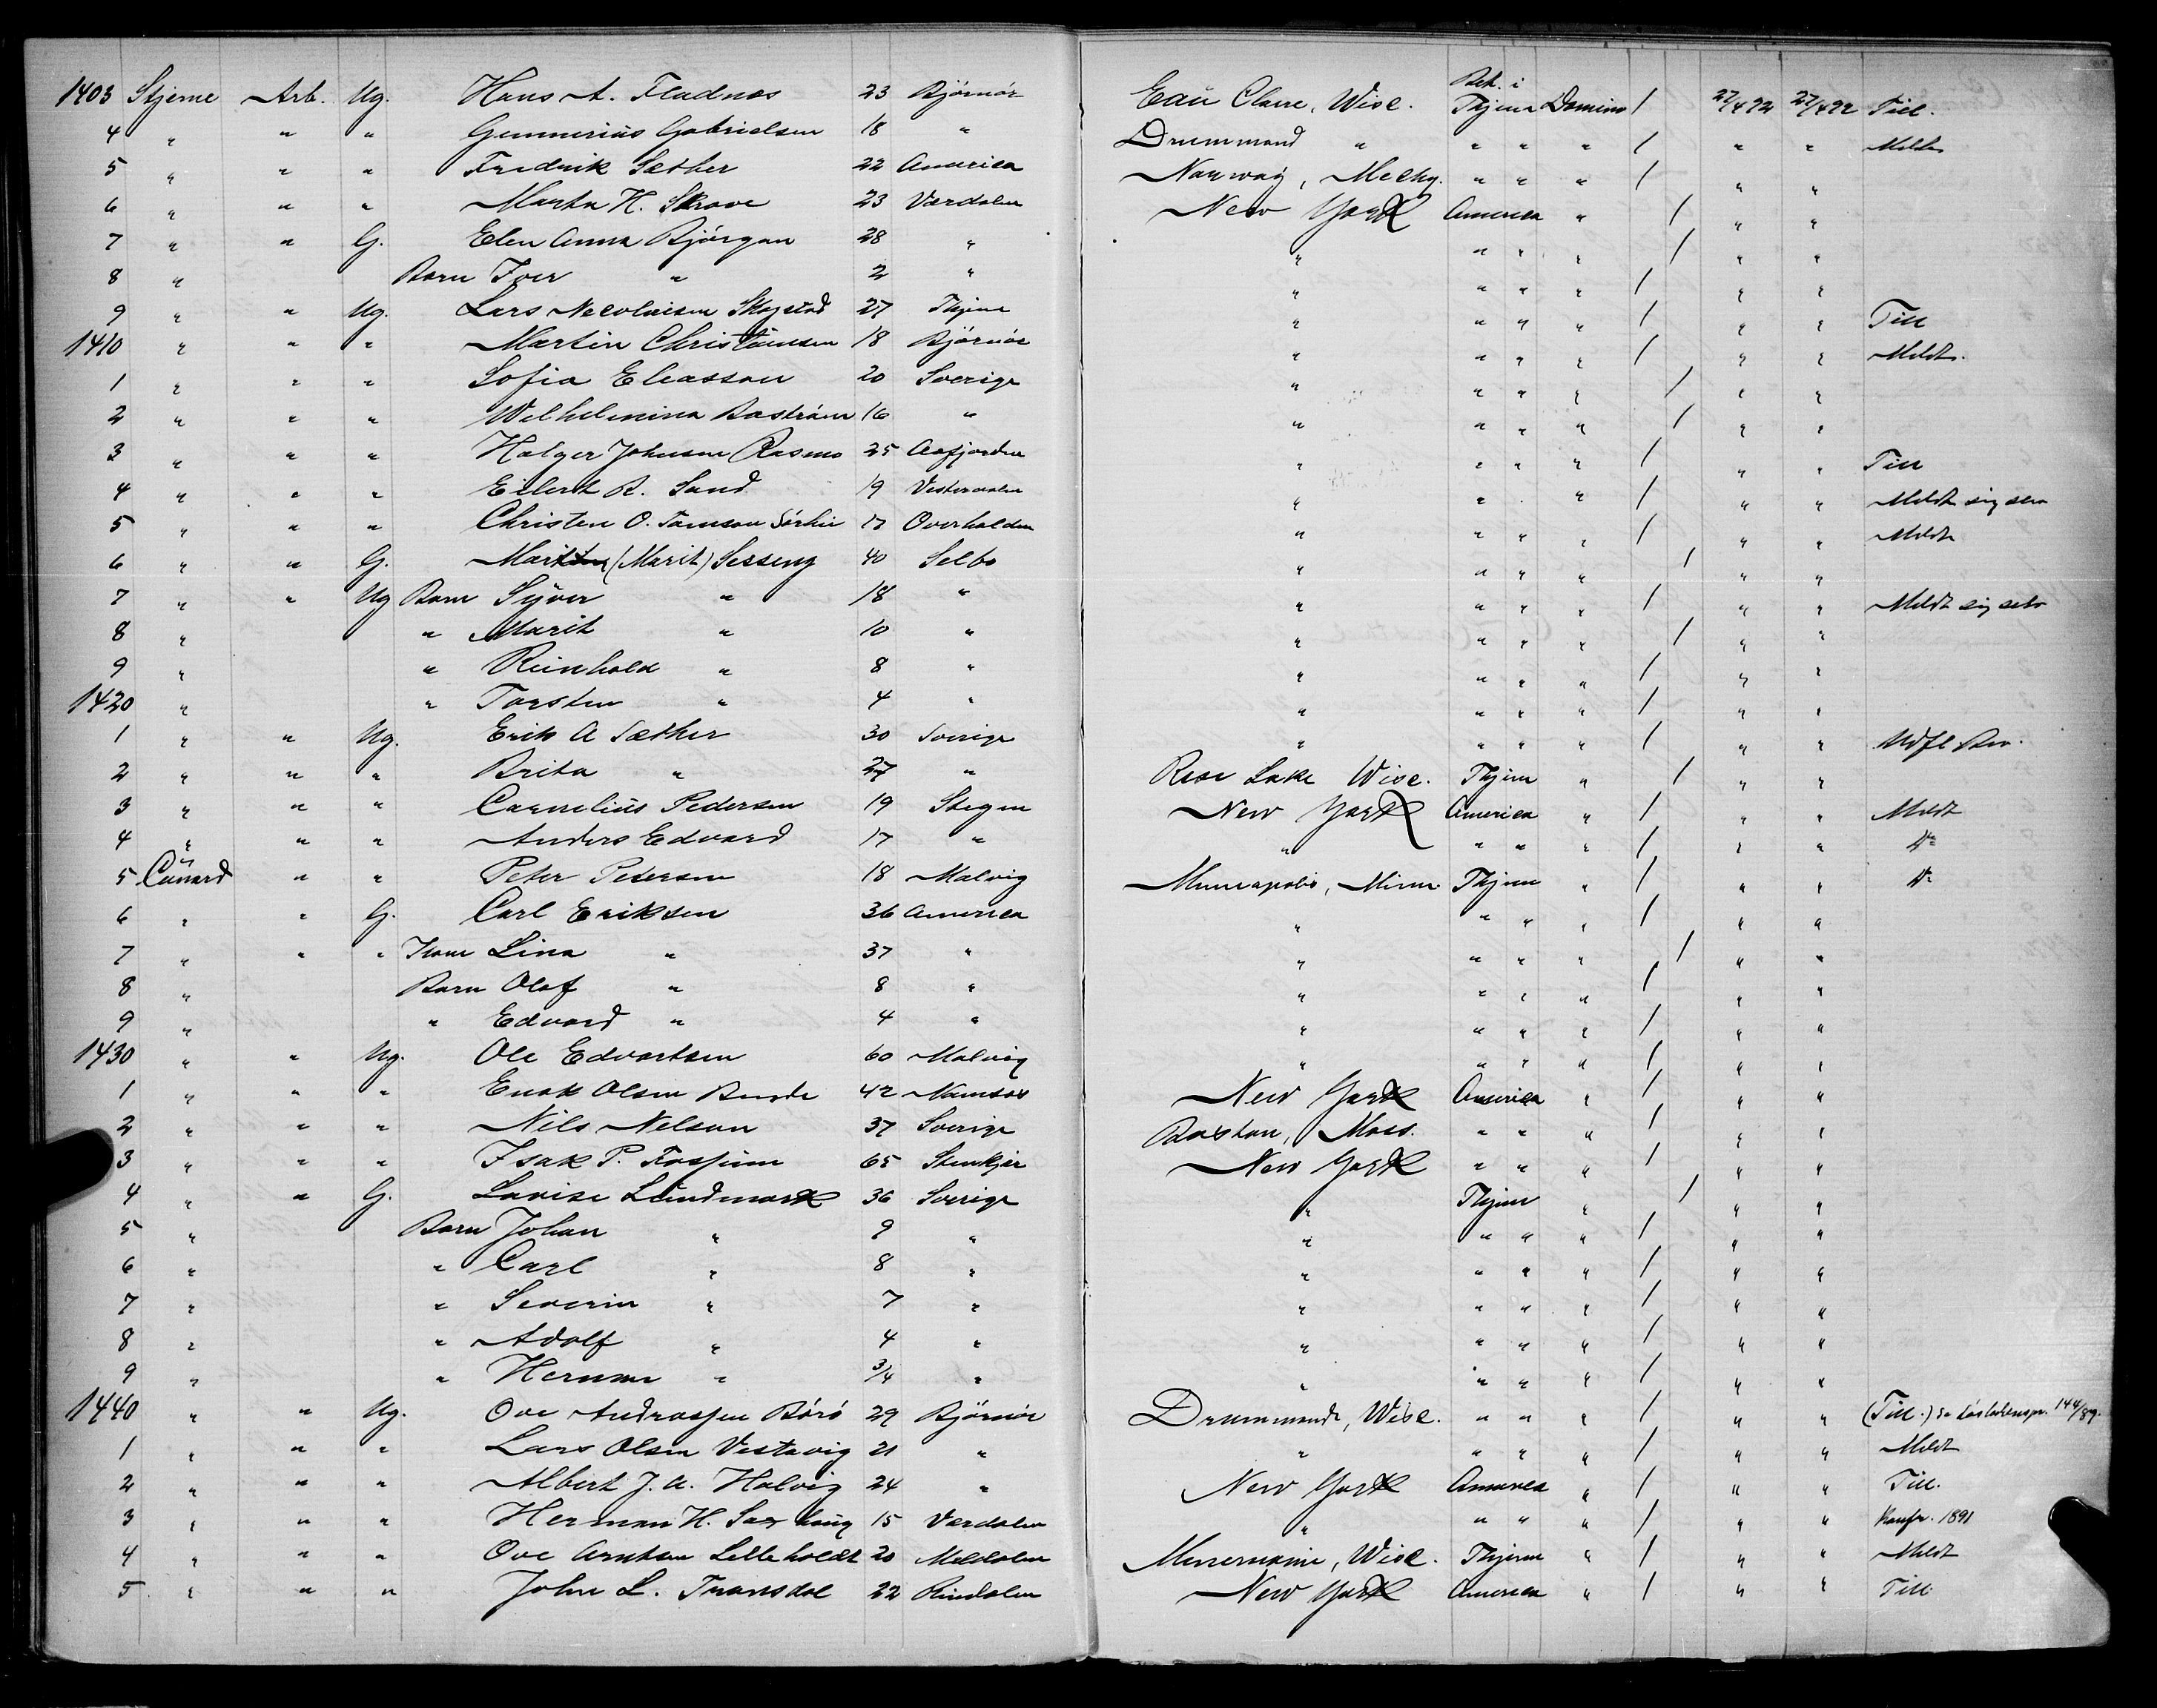 1403 Stjerne Arb. Ug. Hans A. Fladnes 23 Bjørnør Eau Claire, Wisc. Bet. i Thjem Domino / 27/4 92 27/4 92 Till.
4 " " " Gunnerius Gabrielsen 18 " Drummand " " " " / " " Meldt
5 " " " Fredrik Sæther 22 America Narway, Mechg. " " " / " "
6 " " " Marta H. Skrove 23 Værdalen New York America " / " "
7 " " G. Elen Anna Bjørgan 28 " " " " " / " "
8 " Barn Iver " 2 " " " " " / " "
9 " " Ug. Lars Necolaisen Skogstad 27 Thjem " " " " / " " Till
1410 " " " Martin Christiansen 18 Bjørnør " " " " / " " Meldt.
1 " " " Sofia Eleasson 20 Sverige " " " " / " "
2 " " " Wilhelmina Bostrøm 16 " " " " " / " "
3 " " " Holger Johnsen Rasmo 25 Aafjorden " " " " / " " Till
4 " " " Eilert R. Sand 19 Vesteraalen " " " / " " Meldt sig selv
5 " " " Christen O. Tomson 17 Overhalden " " " " / " " Meldt
6 " " G. Martin (Marit) Sesseng 40 Selbo " " " " / " "
7 " " Ug Barn Syver " 18 " " " " " / " " Meldt sig selv
8 " " Marit " 10 " " " " " / " "
9 " " Reinhold " 8 " " " " " / " "
1420 " " Torsten " 4 " " " " " / " "
1 " " Ug. Erik A Sæther 30 Sverige " " " " / " " Udfl Bev.
2 " " " Brita " 27 " Rice Lake Wisc. Thjem " / " "
3 " " " Carnelius Pedersen 19 Stegen New York America " / " " Meldt
4 " " " Anders Edvard 17 " " " " " / " " Do
5 Cunard " " Peter Petersen 18 Malvig Minneapolis, Minn Thjem " / " " Do
6 " " G. Carl Eriksen 36 America " " " " / " "
7 " " " Kone Lina " 37 " " " " " / " "
8 " Barn Olaf " 8 " " " " " / " "
9 " " Edvard " 4 " " " " " / " "
1430 " " Ug. Ole Edvartsen 60 Malvig " " " " / " "
1 " " " Enok Olsen 42 Namsos New York America " / " "
2 " " " Nils Nelson 37 Sverige Boston, Mass. " " " / " "
3 " " " Isak P. Fossum 65 Stenkjær New York " " " / " "
4 " " G. Lovise Lundmark 36 Sverige " Thjem " / " "
5 " Barn Johan " 9 " " " " " / " "
6 " " Carl " 8 " " " " " / " "
7 " " Severin " 7 " " " " " / " "
8 " " Adolf " 4 " " " " " / " "
9 " " Herman " 3/4 " " " " " / " "
1440 " " Ug. Ove Andreassen Børø 29 Bjørnør Drummonde, Wisc. " " " / " " (Till.) 144/89.
1 " " " Lars Olsen Vestavig 21 " " " " " / " " Meldt
2 " " " Albert J. A. Halvig 24 " New York America " / " " Till.
3 " " " Herman H. 15 Værdalen " " " " / " " Konfr. 1891
4 " " " Ove Arntsen Lilleholdt 20 Meldalen Menemonie, Wisc. Thjem " / " " Meldt
5 " " " John L. Tronsdal 22 Rindalen New York America " / " " Till